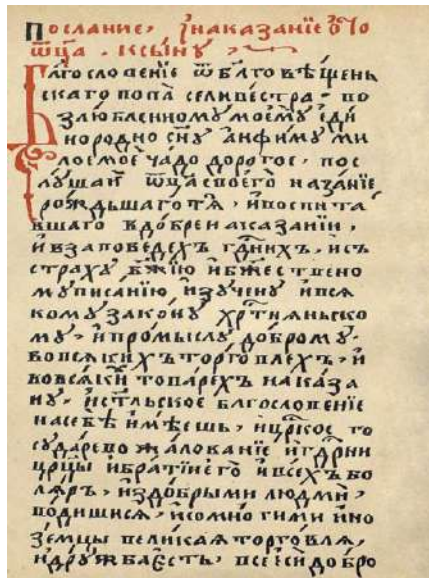 Послание, и наказание ѿ о
ѿца . ксыну ,
Благословение ѿ блговѣщенъ
скаго попа селивестра . во
злюбленному моему еди
нородно сну анфиму ми
лое мое чадо дорогое , пос
лушай ѿца своего наказание
рождьшаго тя , и воспита
вшаго в добре наказании ,
и в заповедехъ гднихъ , и съ
страху бжию и бжествено
му писанию изучену и вся
кому закону хртианьско
му , и промыслу доброму .
во всякихъ торговлехъ , и
во всяки товарехъ наказа
ну , и стльское блгословение
на себѣ имѣешь , и црское го
сударево жалование и гдрни
црцы и братии его и всехъ бо
ляръ , и з добрыми людми ,
водишися , и со многими ино
земцы великая торговля ,
и дружба есть , все еси добро